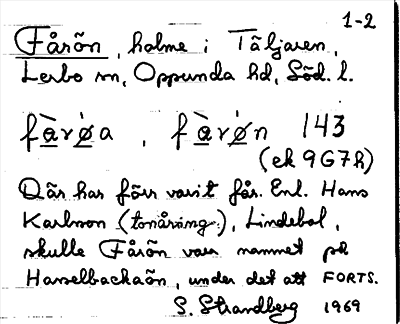 1-2
Fårön, holme i Täljaren,
Lerbo sn, Oppunda hd, Söd. l.
fàrø̀a, fàrø̀n 143
(ek 9G7h)
Där har förr varit får. Enl. Hans
Karlsson (tonåring), Lindebol,
skulle Fårön vara namnet på
Hasselbackaön, under det att FORTS.
S. Strandberg 1969